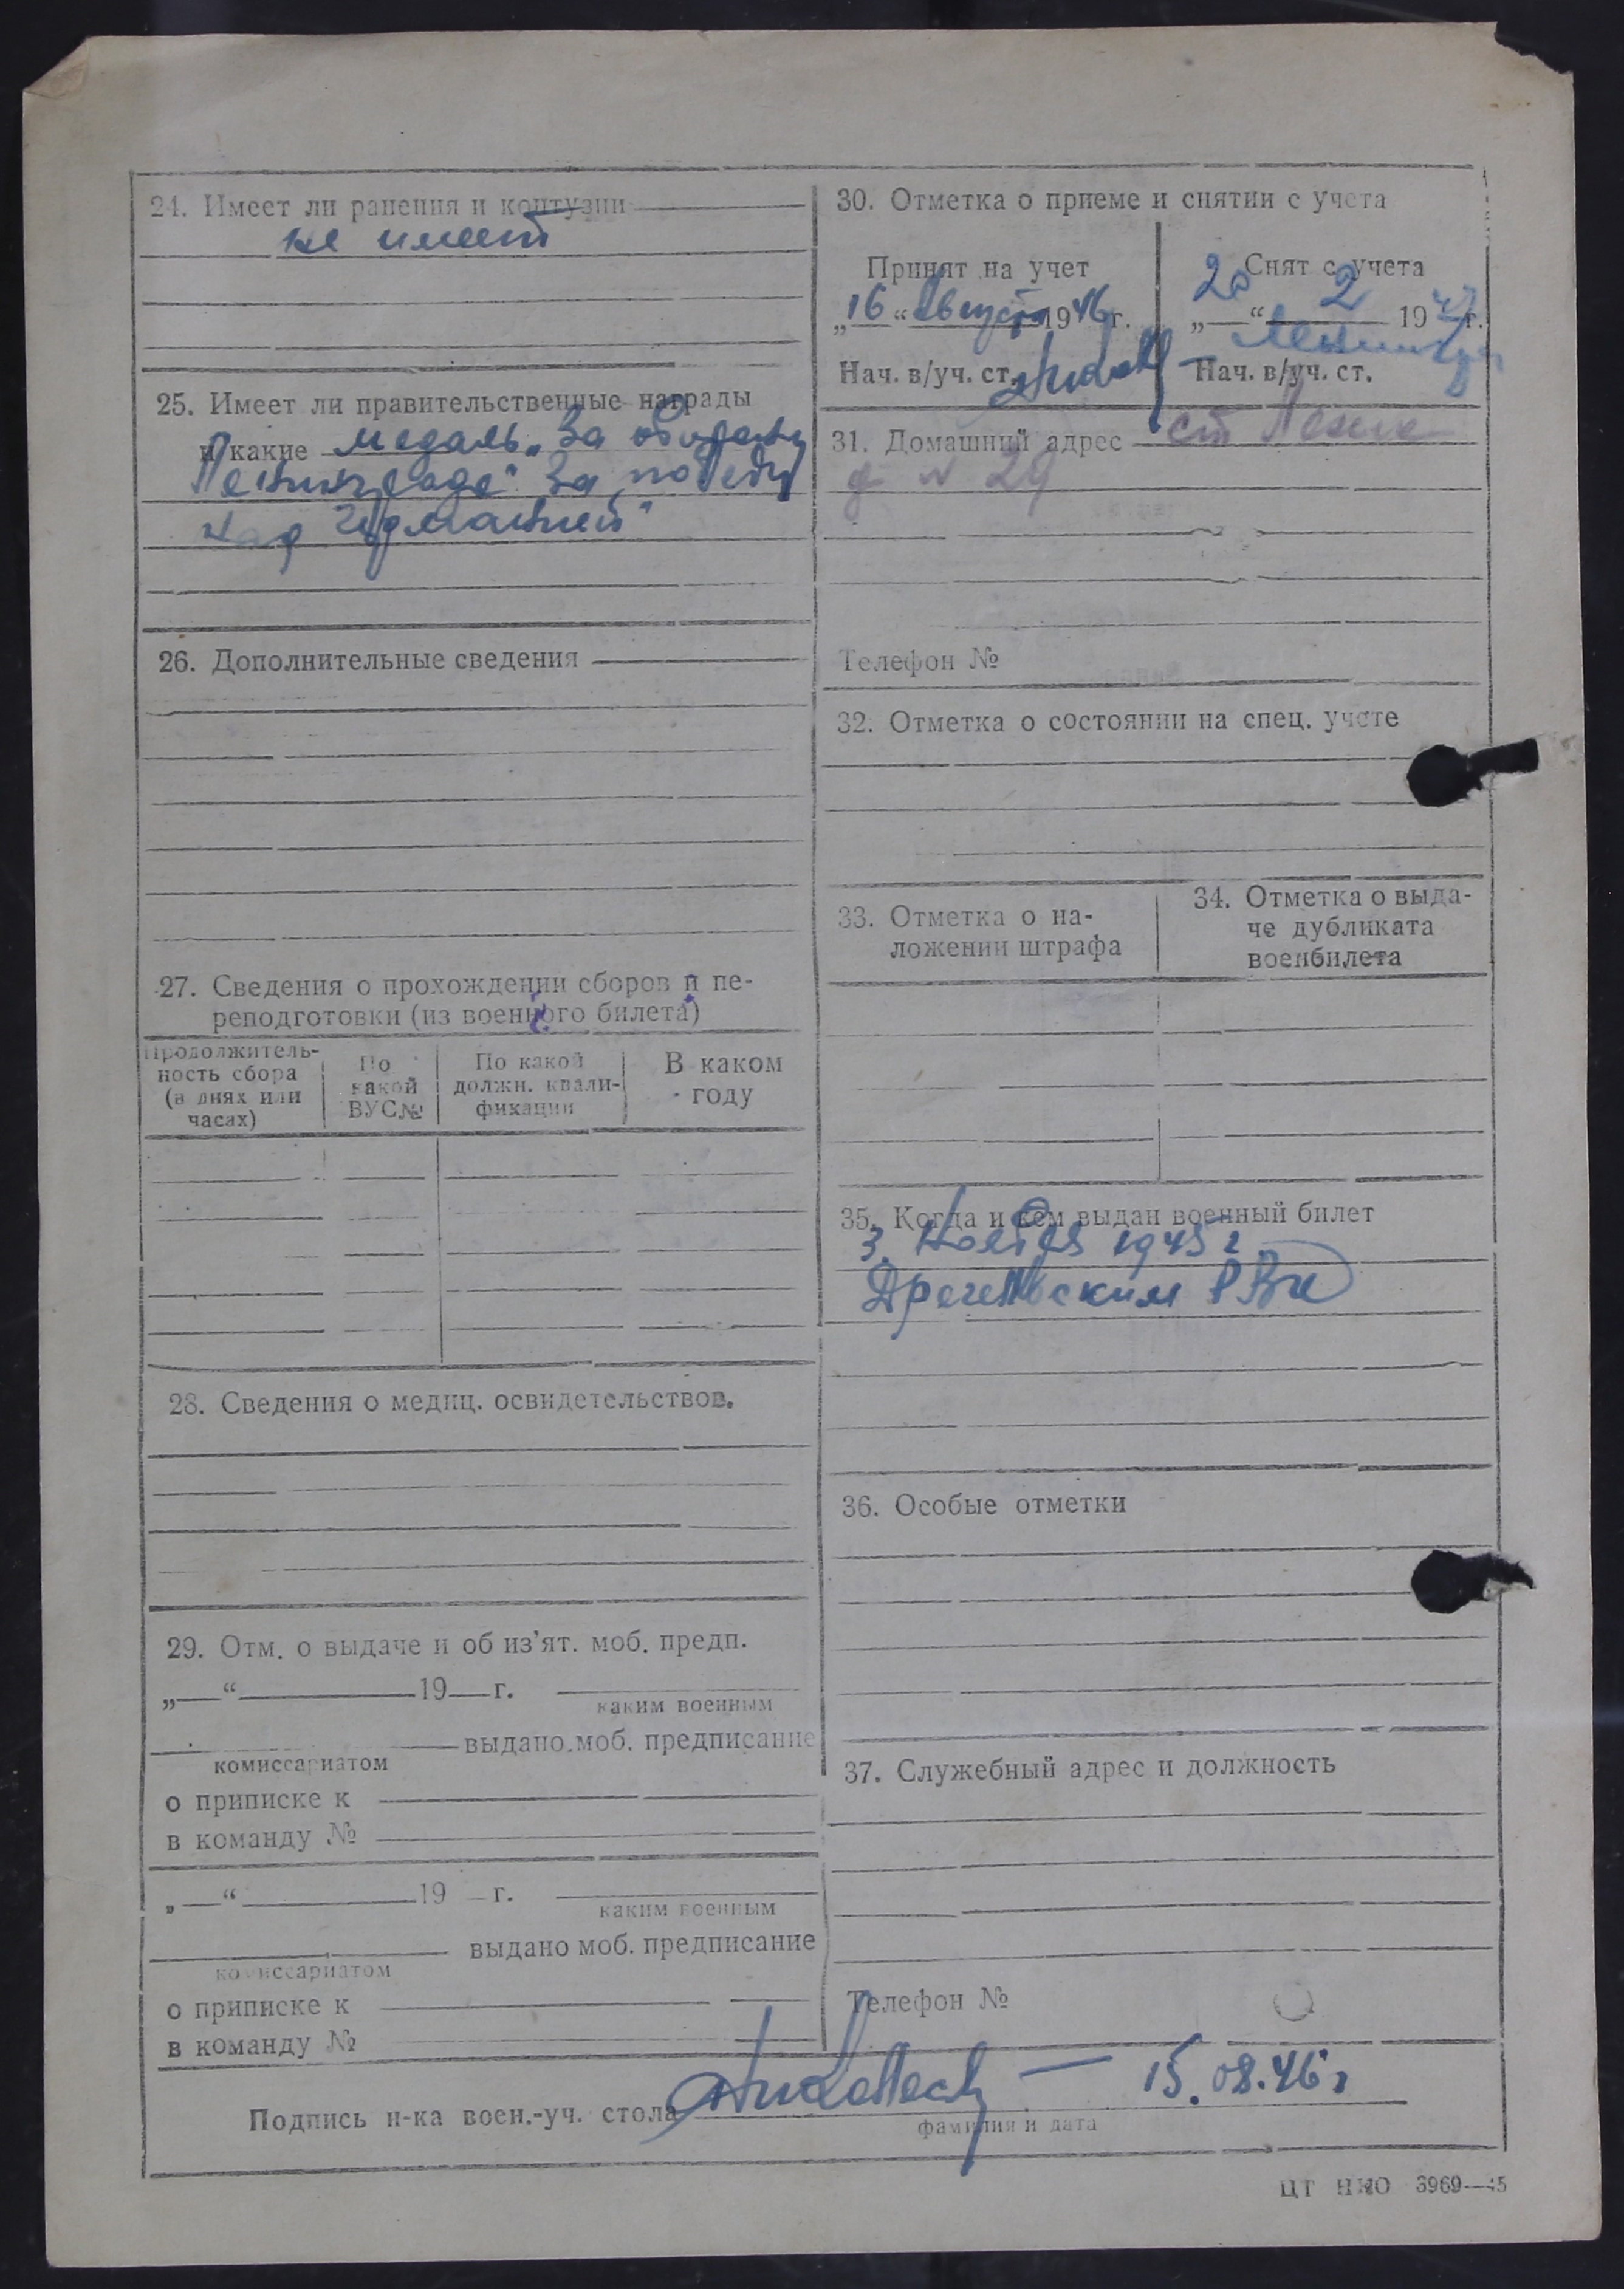 24. Имеет ли ранения и контузии
не имеет
25. Имеет ли правительственные награды
и какие медаль „За оборону
Ленинграда" За победу
над Германией"
26. Дополнительные сведения
27. Сведения о прохождении сборов и пе-
реподготовки (из военного билета)
Продолжитель-
ность сбора
(в днях или
часах)
По
какой
ВУС№
По какой
должн. квали-
фикации
В каком
году
28. Сведения о медиц. освидетельствов.
29. Отм. о выдаче и об из’ят. моб. предп.
„—“ 19—г.
каким военным
выдано моб. предписание
комиссариатом
о приписке к
в команду №
„—“ 19 — г.
каким военным
выдано моб. предписание
комиссариатом
о приписке к
в команду №
30. Отметка о приеме и снятии с учета
Принят на учет
„16“ августа 1946 г.
Нач. в/уч. ст.
Снят с учета
20 2 1947 г.
Нач. в/уч. ст.
31. Домашний адрес ст
д № 29
Телефон №
32. Отметка о состоянии на спец. учете
33. Отметка о на-
ложении штрафа
34. Отметка о выда-
че дубликата
военбилета
35. Когда и кем выдан военный билет
3. Ноября 1945 г
РВК
36. Особые отметки
37. Служебный адрес и должность
Телефон №
Подпись н-ка воен.-уч. стола — 15.08.46 г
фамилия и дата
ЦТ НКО 3969—45